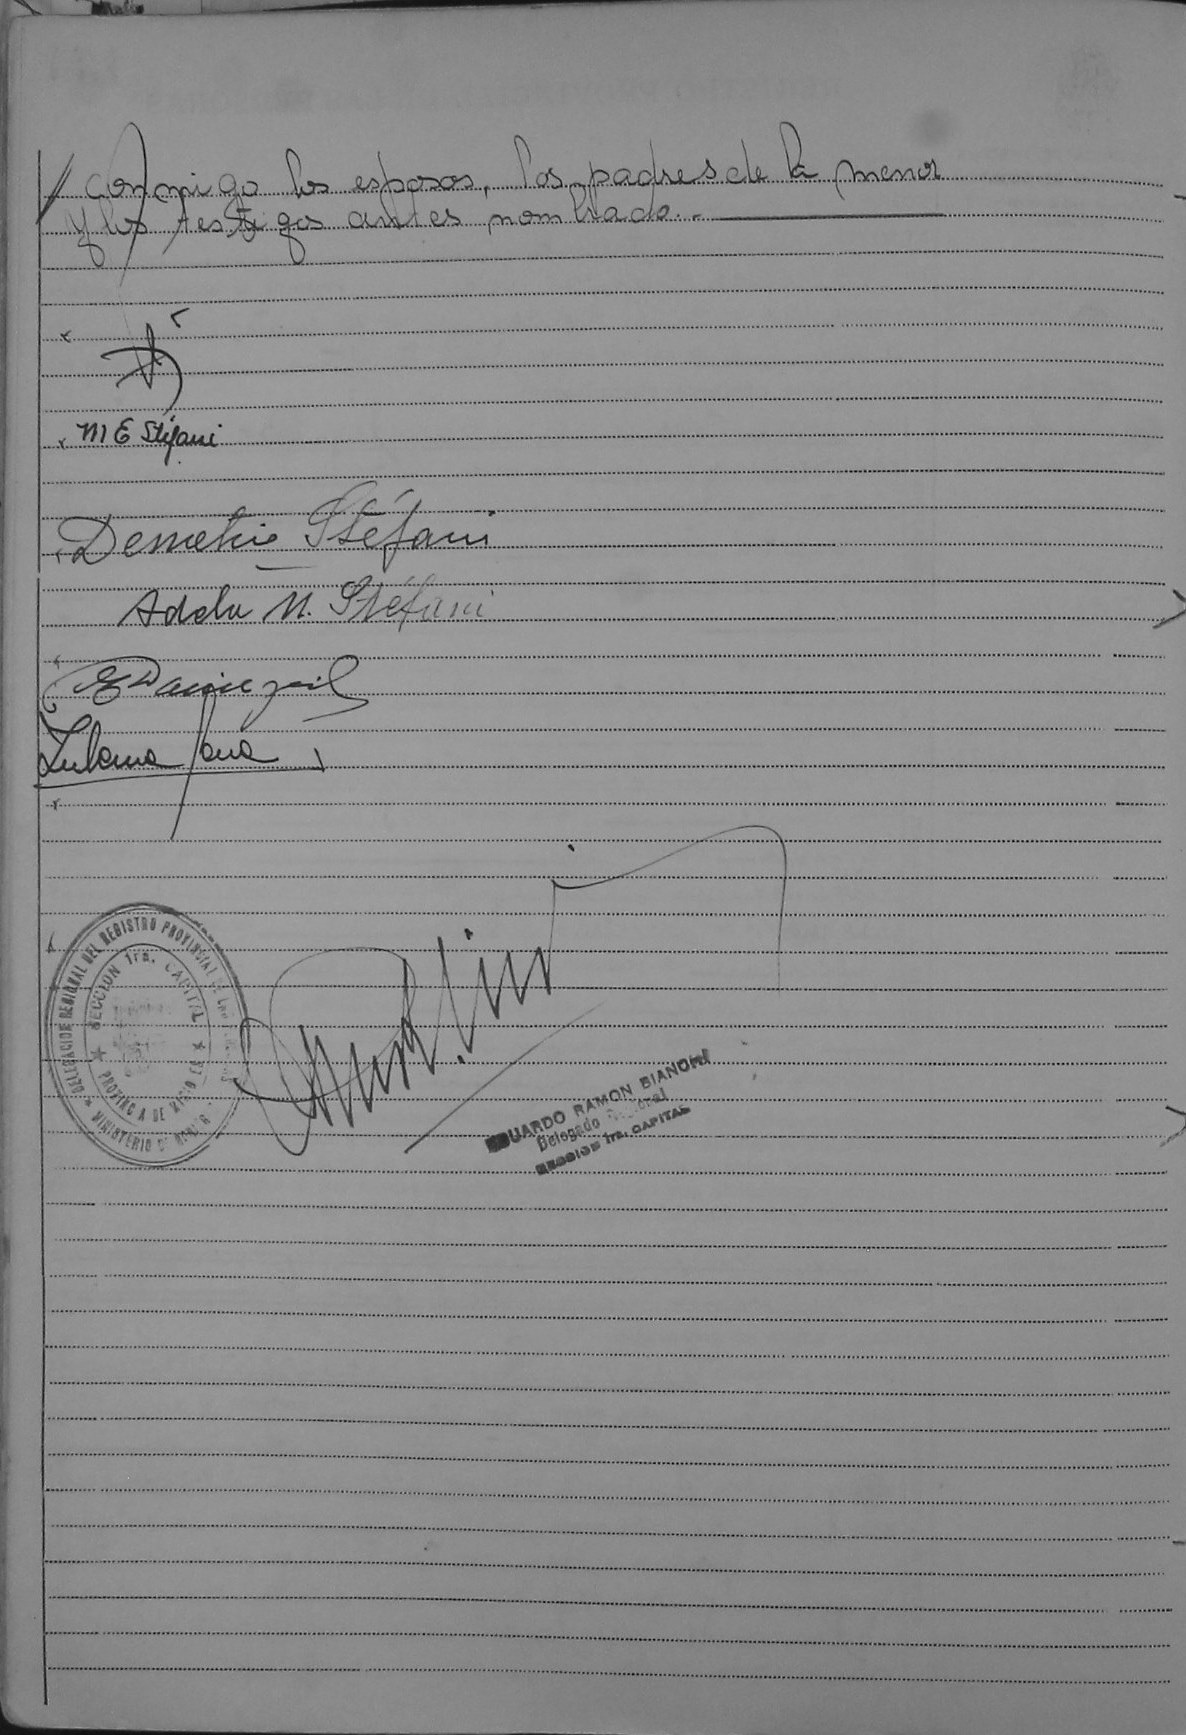 conmigo los esposos, los padres de la menor
y los testigos antes nombrado.-
M E Stéfani
Demetrio Stéfani
Adela M. Stéfani
DELEGACION REGIONAL DEL REGISTRO PROVINCIAL DE LAS
SECCION 1ra. CAPITAL
PROVINCIA DE MISIONES
MINISTERIO
EDUARDO RAMON BIANCHI
Delegado Regional
SECCION 1ra. CAPITAL